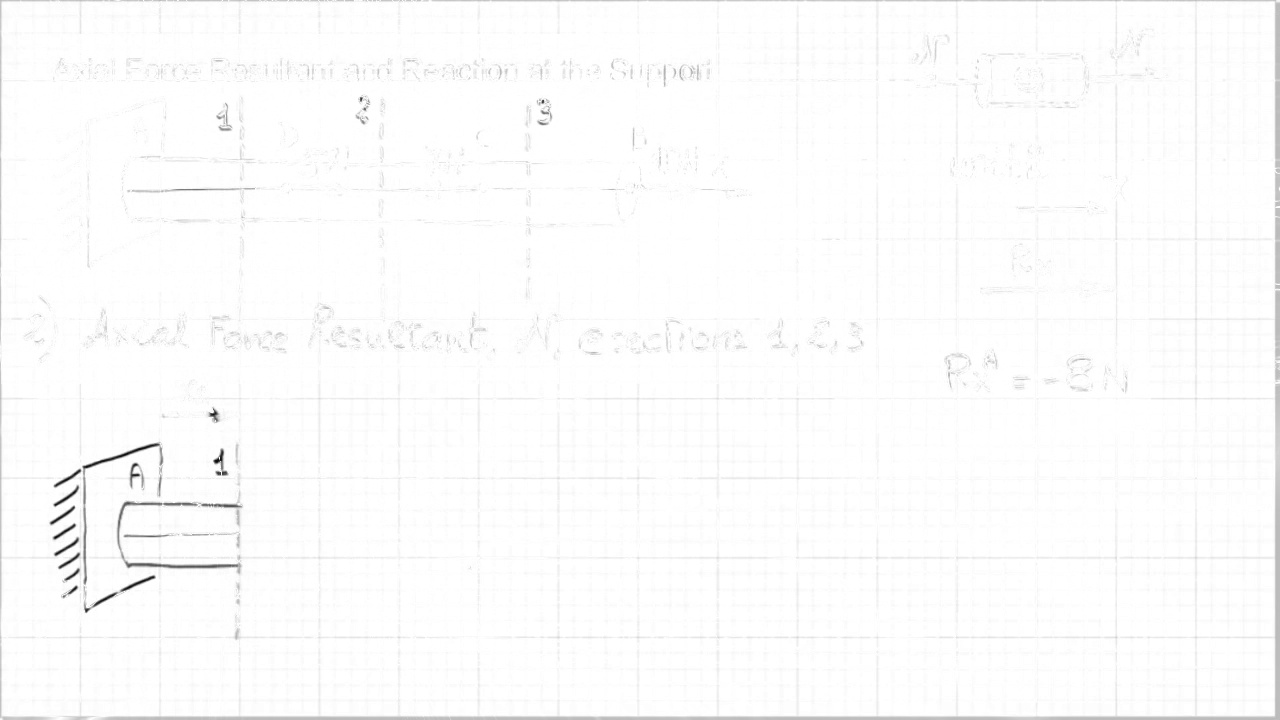 Axial Force Resultant and Reaction at the Support
N N
1 2 3
A D C B
x
Rx
2) Axial Force Resultant, N, @ sections 1, 2, 3
RxA = -8N
1
A